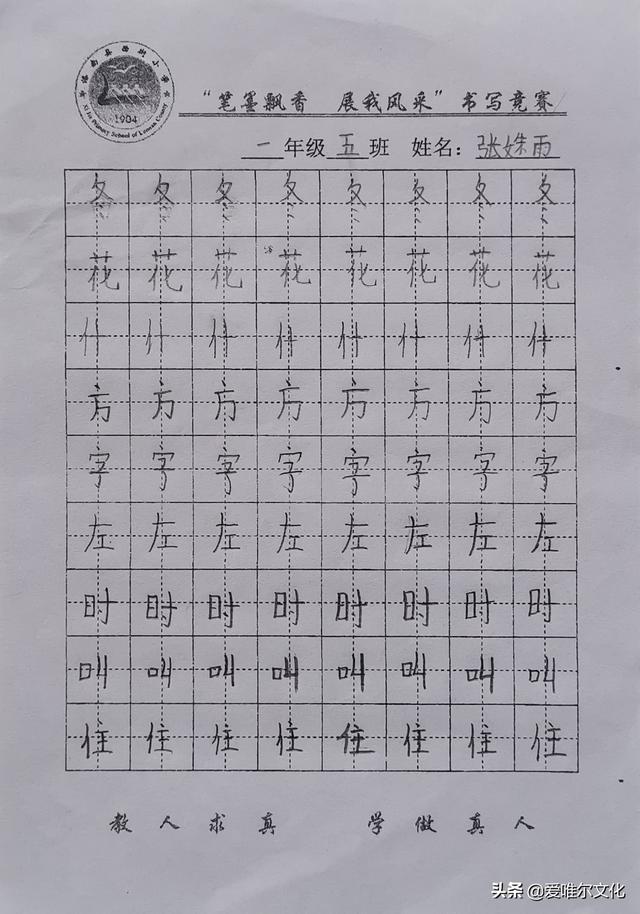 1904
“笔墨飘香 展我风采”书写竞赛
一年级五班 姓名：张姝雨
冬 冬 冬 冬 冬 冬 冬 冬
花 花 花 花 花 花 花 花
什 什 什 什 什 什 什 什
方 方 方 方 方 方 方 方
字 字 字 字 字 字 字 字
左 左 左 左 左 左 左 左
时 时 时 时 时 时 时 时
叫 叫 叫 叫 叫 叫 叫 叫
住 住 住 住 住 住 住 住
教人求真 学做真人
头条 @爱唯尔文化